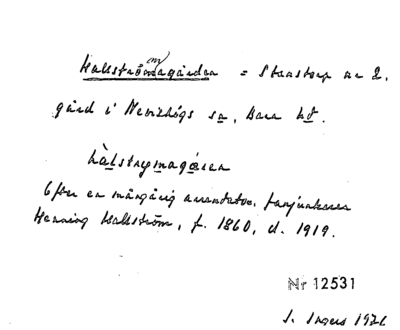 Hallströmagården = Staستorp nr 2.
gård i Nevishögs sn, Bara hd.
hàlstrymagáren
Efter en mångårig arrendator, fanjunkaren
Henning Hallström, f. 1860, d. 1919.
Nr 12531
I. Ingers 1926